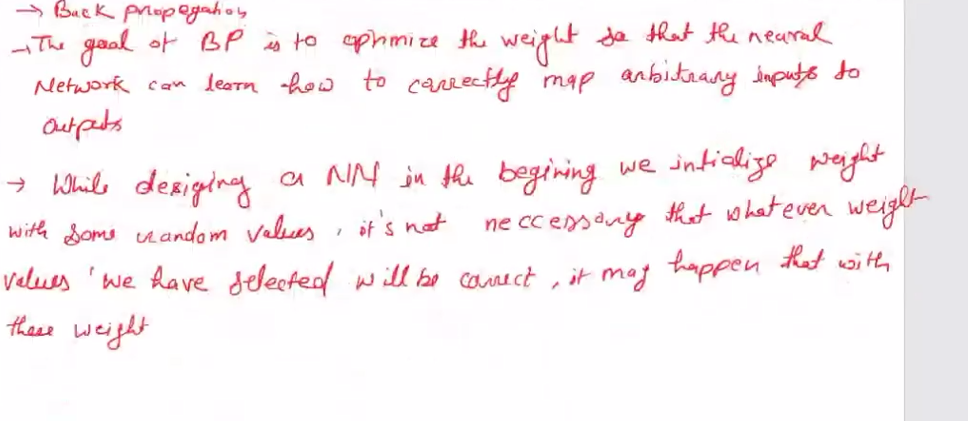 → Back propagation
→ The goal of BP is to optimize the weight so that the neural
Network can learn how to correctly map arbitrary inputs to
Outputs
→ While desiging a NN in the begining we intialize weight
with some random values, it's not neccessary that whatever weight
values we have selected will be correct, it may happen that with
these weight